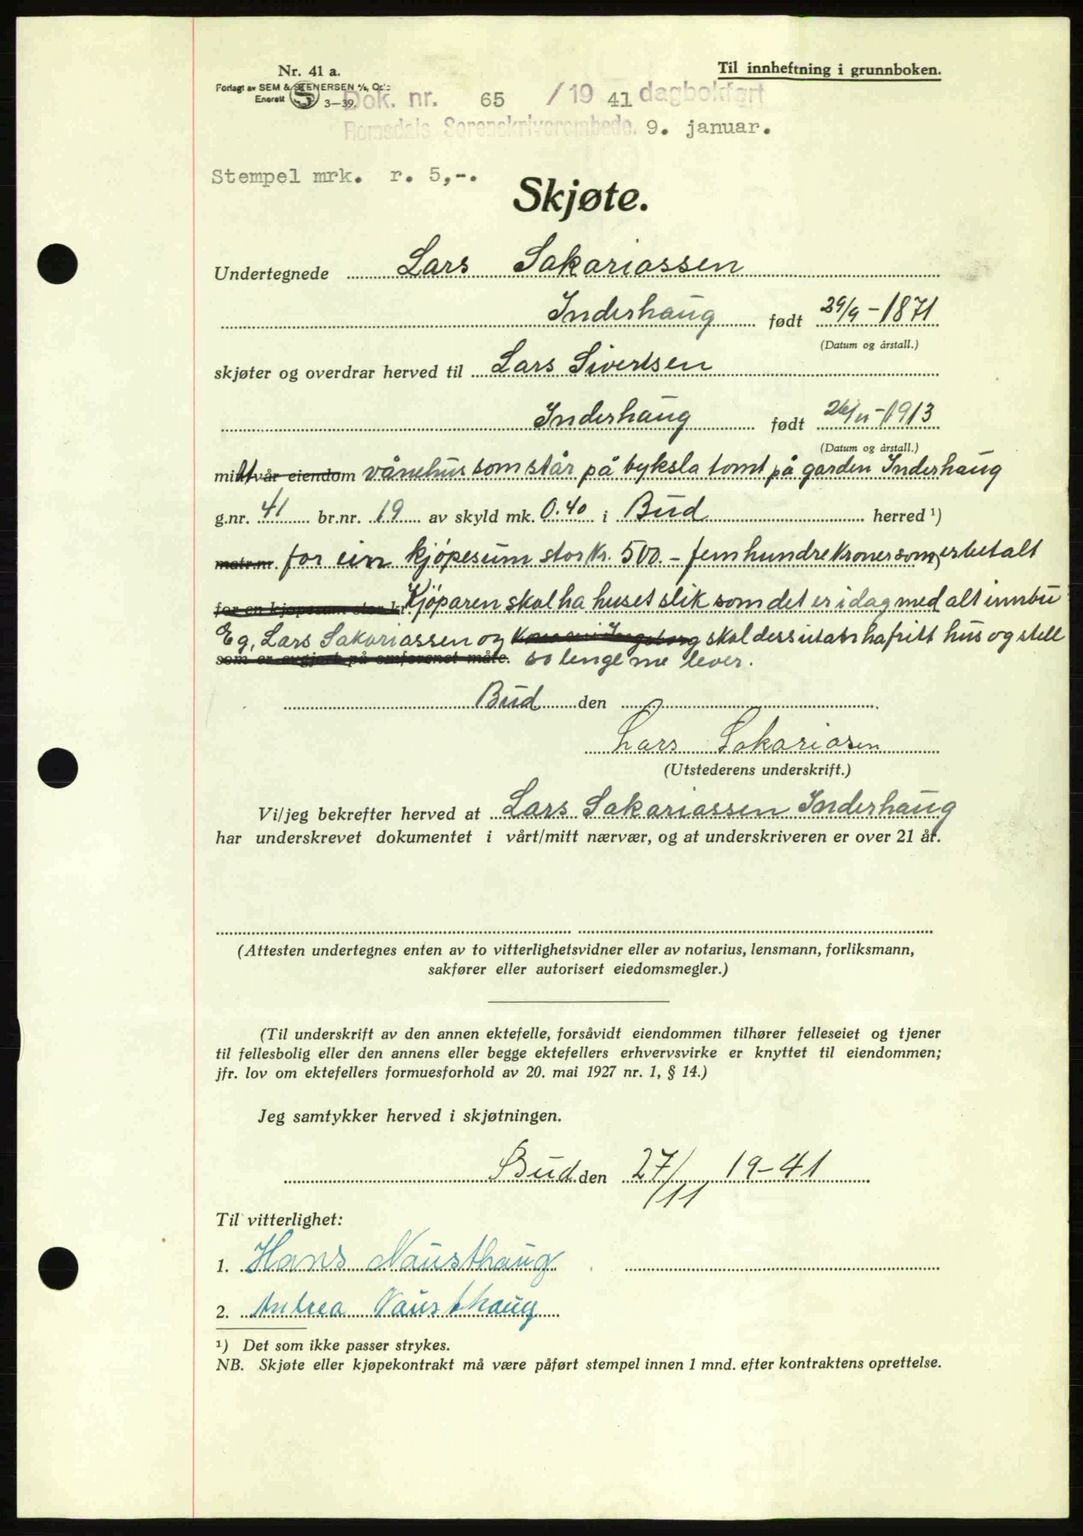 Nr. 41 a.
Til innheftning i grunnboken.
Forlagt av SEM & STENERSEN A/S, Oslo
Enerett S 3—39.
Dok. nr. 65 /19 41 dagbokført
Romsdals Sorenskriverembede. 9. januar.
Stempel mrk. r. 5,-.
Skjøte.
Undertegnede Lars Sakariassen
Inderhaug født 29/9 - 1871
(Datum og årstall.)
skjøter og overdrar herved til Lars Sivertsen
Inderhaug født 26/11 - 1913
(Datum og årstall.)
mitt/vår eiendom vånehus som står på byksla tomt på garden Inderhaug
g.nr. 41 br.nr. 19 av skyld mk. 0.40 i Bud herred ¹)
matr.nr. for ein kjøpesum stor kr. 500.- femhundre kroner som er betalt
for en kjøpesum stor kr. Kjøparen skal ha huset slik som det er i dag med alt innbu
Eg, Lars Sakariassen og skal dessutan ha fritt hus og stell
som er avgjort på omforenet måte. so lenge me lever.
Bud den
Lars Sakariasen
(Utstederens underskrift.)
Vi/jeg bekrefter herved at Lars Sakariassen Inderhaug
har underskrevet dokumentet i vårt/mitt nærvær, og at underskriveren er over 21 år.
(Attesten undertegnes enten av to vitterlighetsvidner eller av notarius, lensmann, forliksmann,
sakfører eller autorisert eiedomsmegler.)
(Til underskrift av den annen ektefelle, forsåvidt eiendommen tilhører felleseiet og tjener
til fellesbolig eller den annens eller begge ektefellers erhvervsvirke er knyttet til eiendommen;
jfr. lov om ektefellers formuesforhold av 20. mai 1927 nr. 1, § 14.)
Jeg samtykker herved i skjøtningen.
Bud den 27/11 19-41
Til vitterlighet:
1. Hans Nausthaug
2. Andrea Nausthaug
¹) Det som ikke passer strykes.
NB. Skjøte eller kjøpekontrakt må være påført stempel innen 1 mnd. efter kontraktens oprettelse.